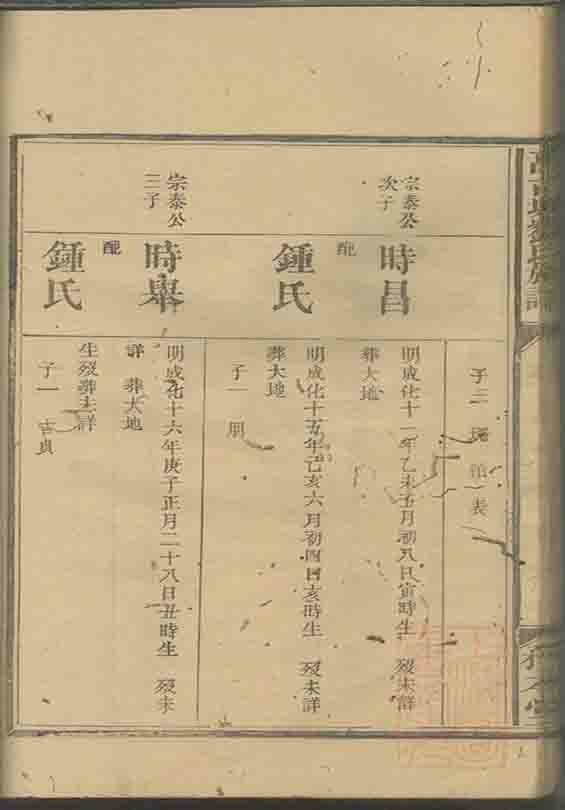 子三
表
宗泰公
次子
時昌
明成化十一年乙未五月初八日寅時生 歿未詳
葬大地
配
鍾氏
明成化十五年己亥六月初四日亥時生 歿未詳
葬大地
子一
宗泰公
三子
時舉
明成化十六年庚子正月二十八日丑時生 歿未
詳 葬大地
配
鍾氏
生歿葬未詳
子一 吉貞